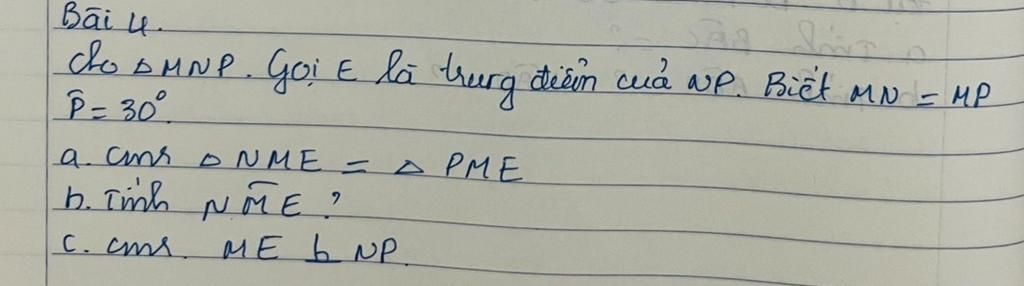 Bài 4.
Cho △MNP. Gọi E là trung điểm của NP. Biết MN = MP
P̂ = 30°.
a. cmr △NME = △PME
b. Tính NM̂E ?
c. cmr. ME ⊥ NP.